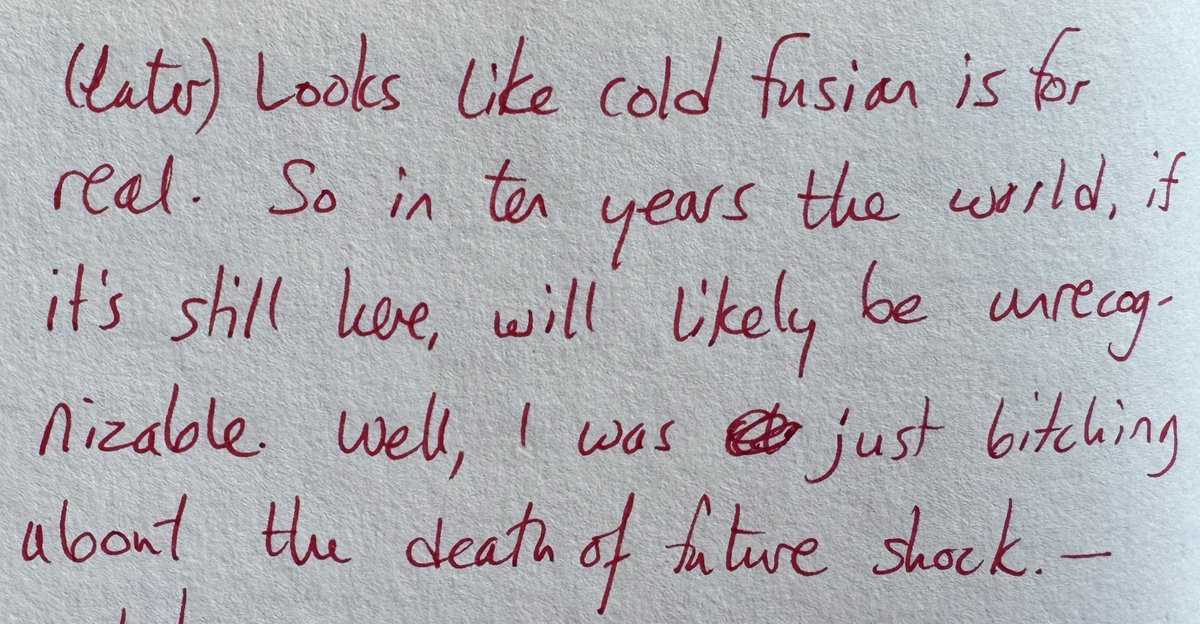 (later) Looks like cold fusion is for
real. So in ten years the world, if
it's still here, will likely be unrecog-
nizable. Well, I was just bitching
about the death of future shock. —